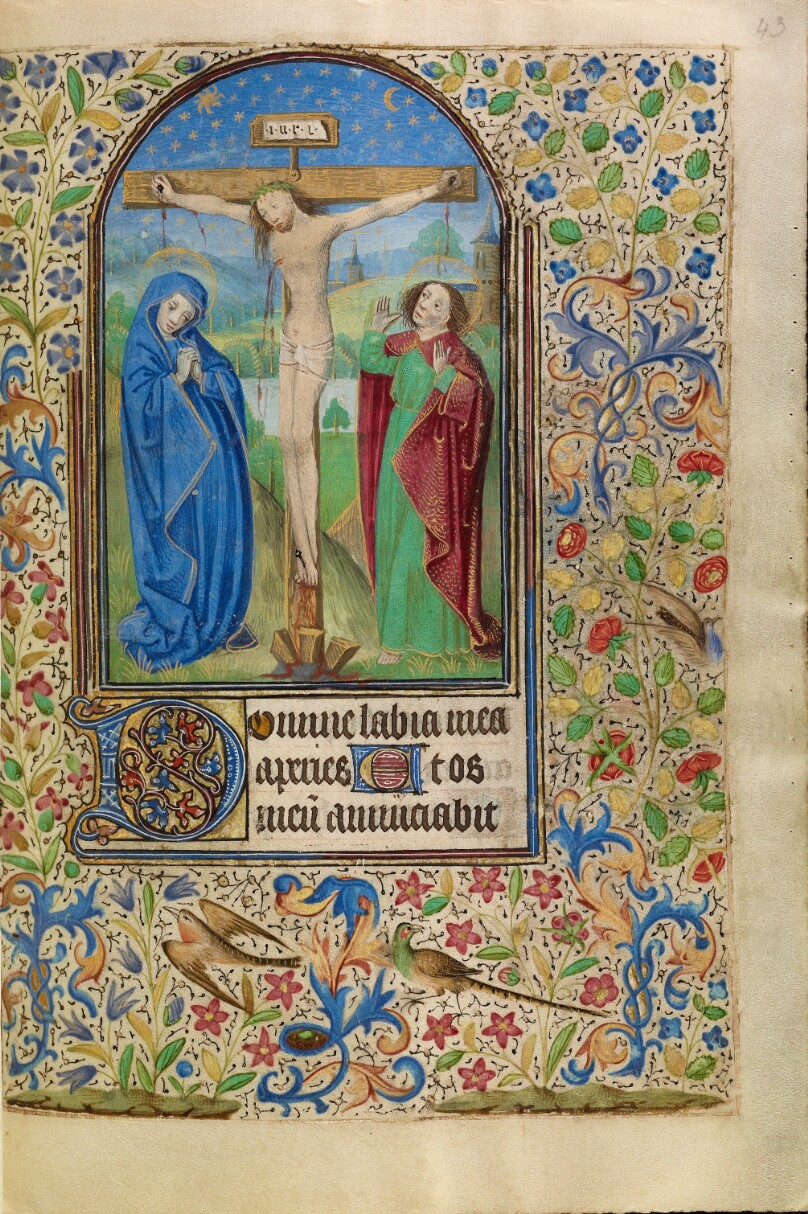 43
·I·N·R·I·
Domine labia mea
aperies Et os
meū anunciabit